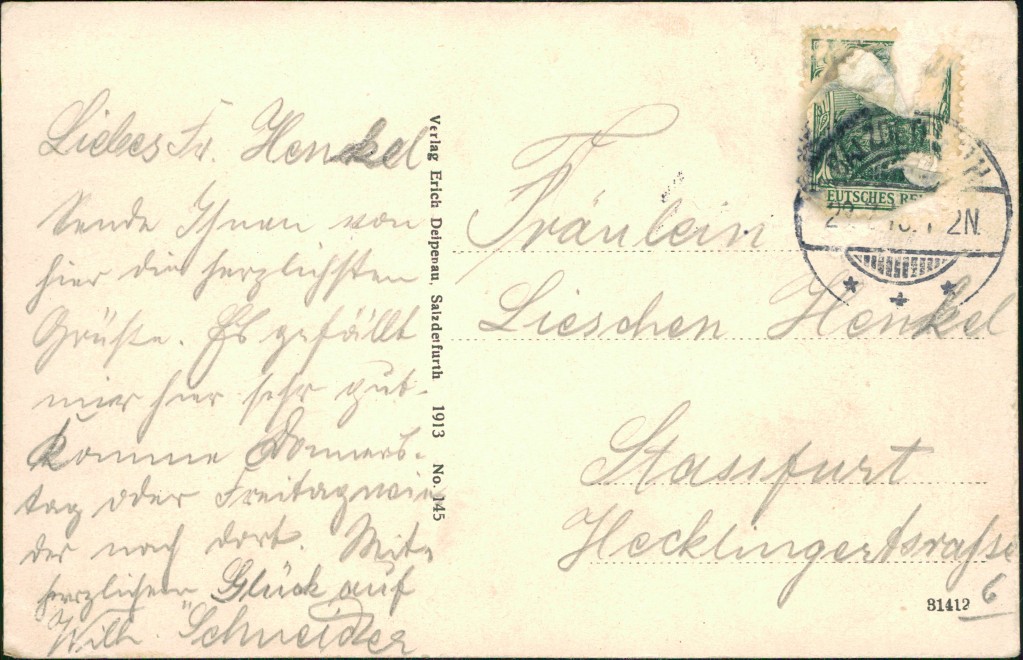 Liebes Fr. Henkel
Sende Ihnen von
hier die herzlichsten
Grüße. Es gefällt
mir hier sehr gut.
Komme Donners-
tag oder Freitag wie
der nach dort. Mit
herzlichem Glück auf
Wilh. Schneider
Verlag Erich Deipenau, Salzdetfurth 1913 No. 145
EUTSCHES RE
2N.
Fräulein
Lieschen Henkel
Stassfurt
Hecklingertsraße
6
31412